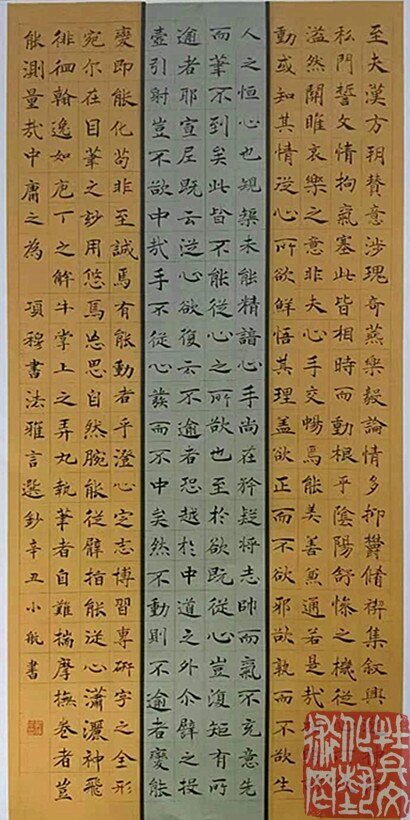 至夫漢方朔賛意涉瑰奇燕樂毅論情多抑鬱脩禊集叙興
私門誓文情拘氣塞此皆相時而動根乎陰陽舒慘之機從
溢然關雎哀樂之意非夫心手交暢焉能美善兼通若是哉
動或知其情從心所欲鮮悟其理蓋欲正而不欲邪欲孰而不欲生
人之恒心也規榘未能精諳心手尚在矜疑將志帥而氣不充意先
而筆不到矣此皆不能從心之所欲也至於欲既從心豈復矩有所
逾者耶宣尼既云從心欲復云不逾者恐越於中道之外尒譬之投
壺引射豈不欲中哉手不從心發而不中矣然不動則不逾者變能
變即能化苟非至誠焉有能動者乎澄心定志博習專研字之全形
宛尔在目筆之妙用悠焉忽思自然腕能從臂指能從心瀟灑神飛
徘徊翰逸如庖丁之解牛掌上之弄丸執筆者自難揣摩撫卷者豈
能測量哉中庸之為 項穆書法雅言選鈔辛丑小航書